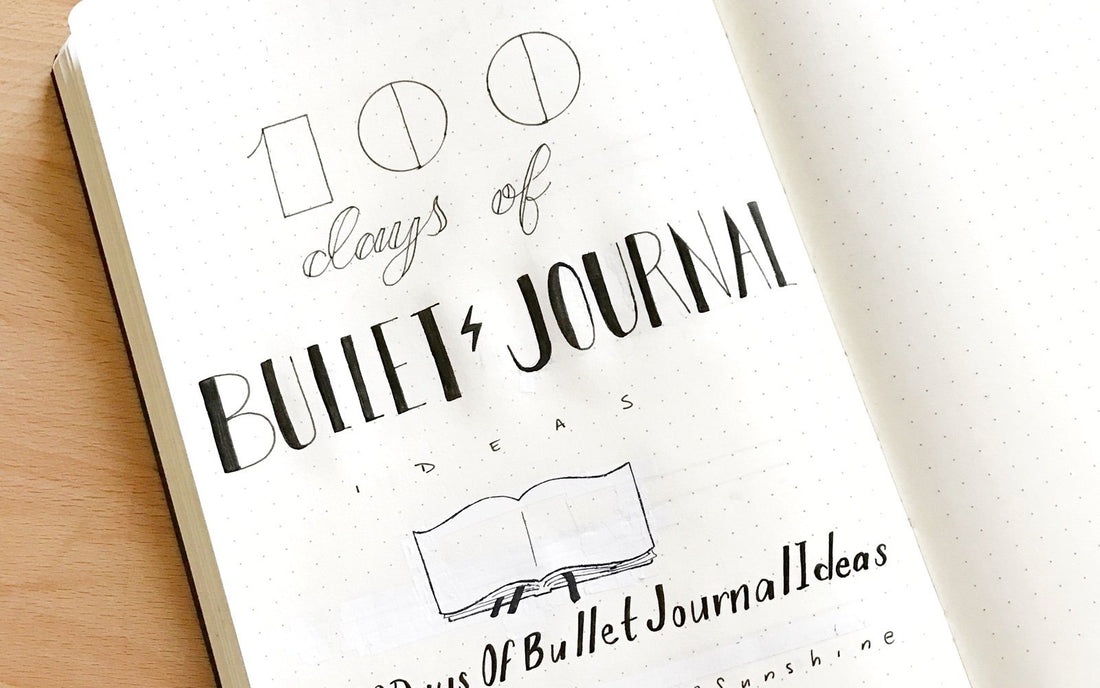 100
days of
BULLET JOURNAL
IDEAS
Days Of Bullet Journal Ideas
Sunshine